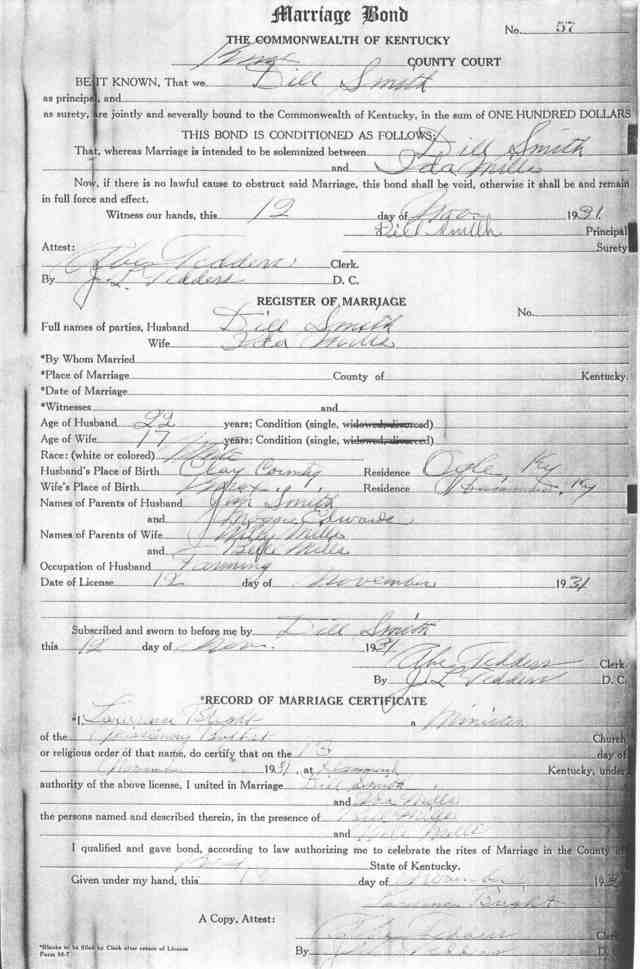 Marriage Bond
No. 57
THE COMMONWEALTH OF KENTUCKY
Knox COUNTY COURT
BE IT KNOWN, That we Dill Smith
as principal, and
as surety, are jointly and severally bound to the Commonwealth of Kentucky, in the sum of ONE HUNDRED DOLLARS
THIS BOND IS CONDITIONED AS FOLLOWS:
That, whereas Marriage is intended to be solemnized between Dill Smith
and Ida Mills
Now, if there is no lawful cause to obstruct said Marriage, this bond shall be void, otherwise it shall be and remain
in full force and effect.
Witness our hands, this 12 day of Nov 1931
Dill Smith Principal
Surety
Attest:
Abe Tedders Clerk.
By J. L. Tedders D. C.
REGISTER OF MARRIAGE
No.
Full names of parties, Husband Dill Smith
Wife Ida Mills
*By Whom Married
*Place of Marriage County of Kentucky.
*Date of Marriage
*Witnesses and
Age of Husband 22 years; Condition (single, widowed, divorced)
Age of Wife 17 years; Condition (single, widowed, divorced)
Race: (white or colored) White
Husband's Place of Birth Clay County Residence Ogle, Ky
Wife's Place of Birth Knox Residence Ky
Names of Parents of Husband Jim Smith
and Maggie Edwards
Names of Parents of Wife Mills
and Mills
Occupation of Husband Farming
Date of License 12 day of November 1931
Subscribed and sworn to before me by Dill Smith
this 12 day of Nov. 1931
Abe Tedders Clerk
By J L Tedders D. C.
*RECORD OF MARRIAGE CERTIFICATE
*I, Bright a Minister
of the Baptist Church
or religious order of that name, do certify that on the day of
1931, at Kentucky, under
authority of the above license, I united in Marriage Dill Smith
and Ida Mills
the persons named and described therein, in the presence of Mills
and Mills
I qualified and gave bond, according to law authorizing me to celebrate the rites of Marriage in the County of
State of Kentucky.
Given under my hand, this day of 193
Bright
A Copy, Attest:
Abe Tedders Clerk
By D. C.
*Blanks to be filled by Clerk after return of License
Form M-7